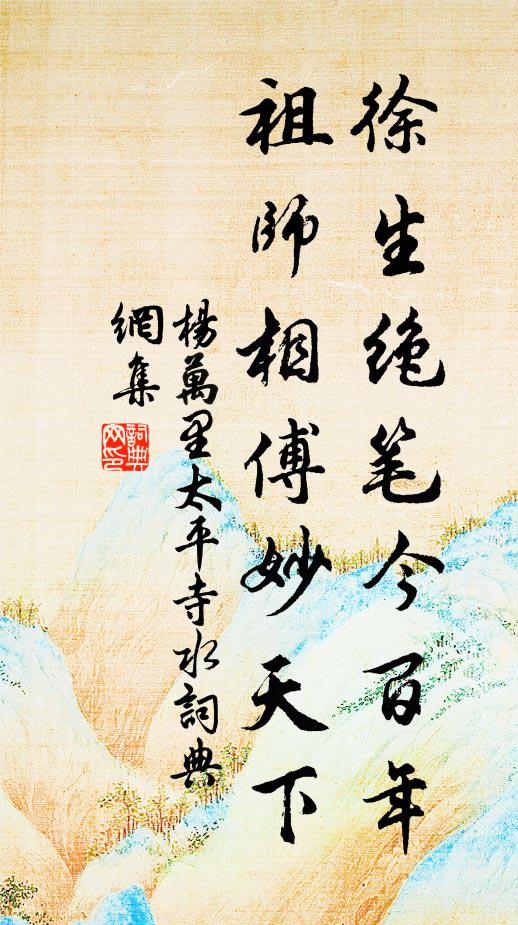 徐生绝笔今百年
祖師相傅妙天下
楊萬里太平寺水詞典
網集
詞典
网印